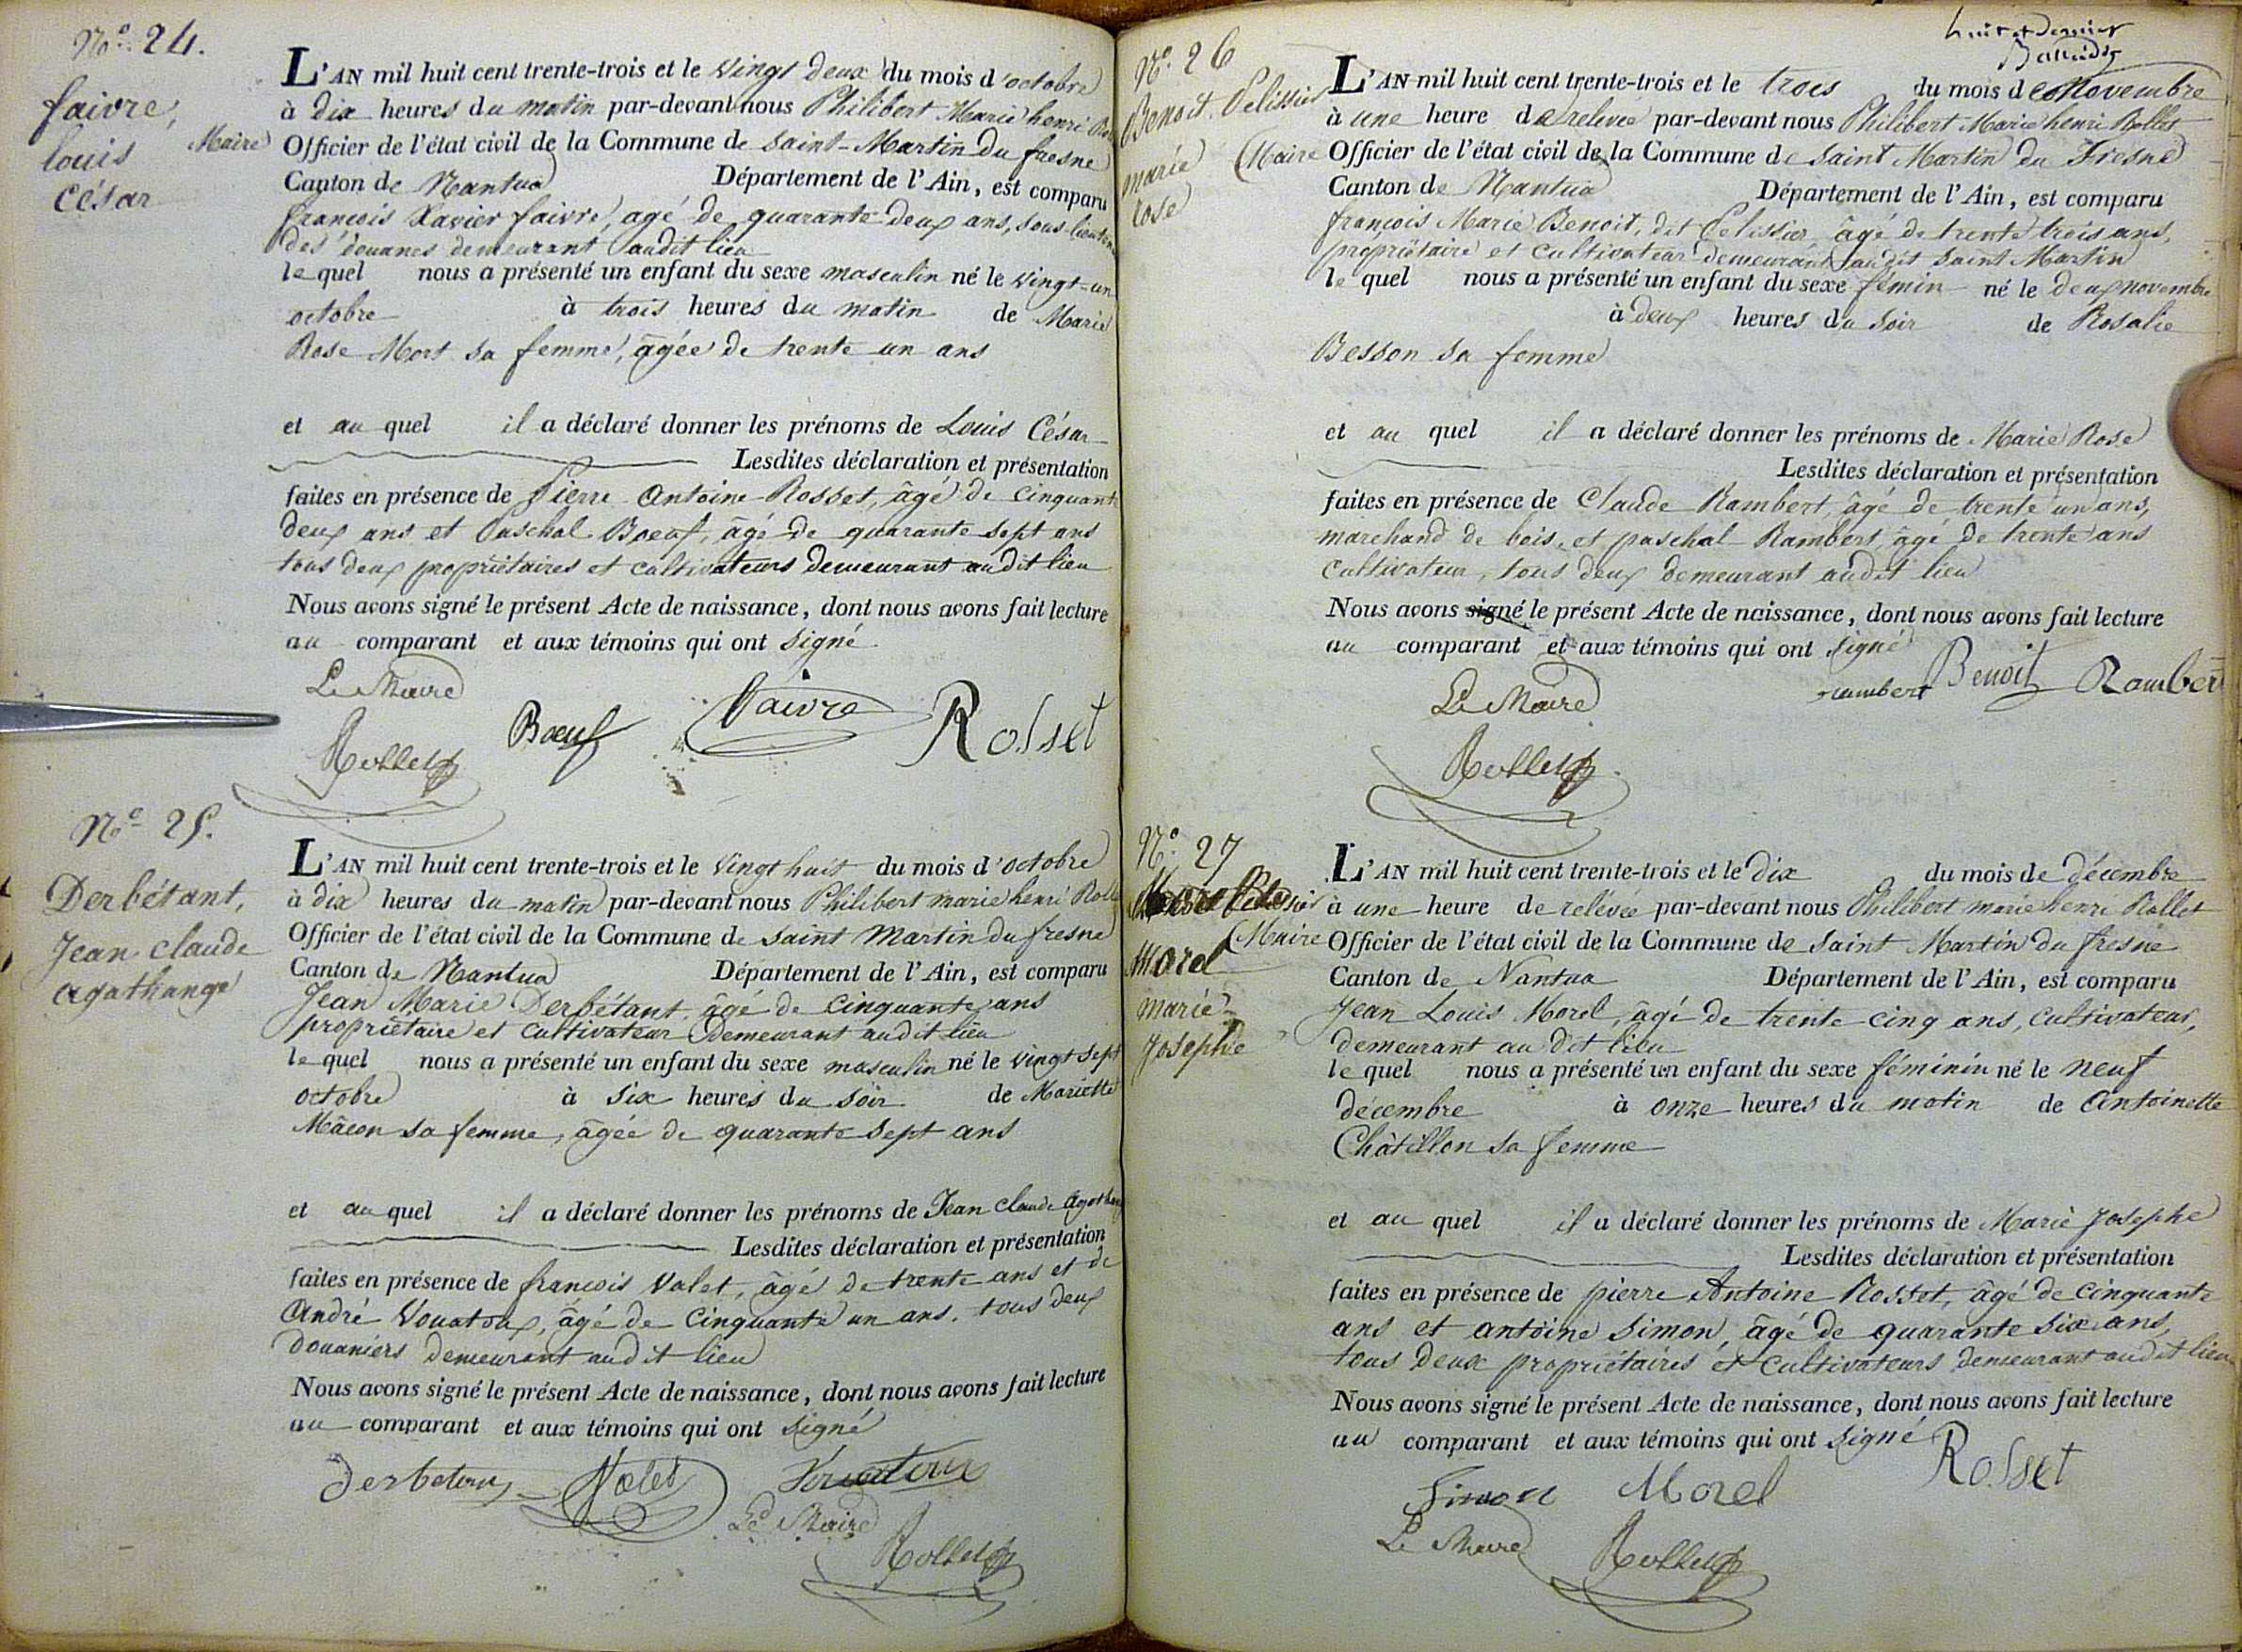 No. 24.
faivre,
louis
César
L'AN mil huit cent trente-trois et le vingt deux du mois d'octobre
à dix heures du matin par-devant nous Philibert Marie henri
Maire Officier de l'état civil de la Commune de saint-Martin du fresne
Canton de Nantua Département de l'Ain, est comparu
françois Xavier faivre, agé de quarante-deux ans, sous-lieuten
des douanes demeurant audit lieu
le quel nous a présenté un enfant du sexe masculin né le vingt-un
octobre à trois heures du matin de Marie
Rose Mort sa femme, âgée de trente un ans
et au quel il a déclaré donner les prénoms de Louis César
Lesdites déclaration et présentation
faites en présence de Pierre Antoine Rosset, âgé de cinquante
deux ans et Paschal Boeuf, âgé de quarante sept ans
tous deux propriétaires et cultivateurs demeurant audit lieu
Nous avons signé le présent Acte de naissance, dont nous avons fait lecture
au comparant et aux témoins qui ont signé
Le Maire
Boeuf Faivre Rosset
Rollet
No. 25.
Derbétant,
Jean claude
agathange
L'AN mil huit cent trente-trois et le vingt huit du mois d'octobre
à dix heures du matin par-devant nous Philibert marie henri Rolle
Officier de l'état civil de la Commune de saint Martin du fresne
Canton de Nantua Département de l'Ain, est comparu
Jean Marie Derbétant, âgé de cinquante ans
propriétaire et cultivateur demeurant audit lieu
le quel nous a présenté un enfant du sexe masculin né le vingt sept
octobre à six heures du soir de Mariette
Mâcon sa femme, âgée de quarante sept ans
et au quel il a déclaré donner les prénoms de Jean claude agathang
Lesdites déclaration et présentation
faites en présence de françois Valet, âgé de trente ans et de
André Vouatoux, âgé de cinquante un ans, tous deux
Douaniers demeurant audit lieu
Nous avons signé le présent Acte de naissance, dont nous avons fait lecture
au comparant et aux témoins qui ont signé
Valet Vouatoux
Le Maire
Rollet
huit et dernier
No. 26
Benoit Pelissier
marie
rose
L'AN mil huit cent trente-trois et le trois du mois de Novembre
à une heure de relevée par-devant nous Philibert Marie henri Rollet
(Maire Officier de l'état civil de la Commune de saint Martin du Fresne
Canton de Nantua Département de l'Ain, est comparu
françois Marie Benoit, dit Pelissier âgé de trente trois ans,
propriétaire et cultivateur demeurant audit saint Martin
le quel nous a présenté un enfant du sexe fémin né le deux novembre
à deux heures du soir de Rosalie
Besson sa femme
et au quel il a déclaré donner les prénoms de Marie Rose
Lesdites déclaration et présentation
faites en présence de Claude Rambert, âgé de trente un ans,
marchand de bois, et paschal Rambert, âgé de trente ans
cultivateur, tous deux demeurant audit lieu
Nous avons signé le présent Acte de naissance, dont nous avons fait lecture
au comparant et aux témoins qui ont signé
rambert Benoit Rambert
Le Maire
Rollet
No. 27
Morel
marie-
Josephe
L'AN mil huit cent trente-trois et le dix du mois de décembre
à une heure de relevée par-devant nous Philibert marie henri Rollet
(Maire Officier de l'état civil de la Commune de saint Martin du fresne
Canton de Nantua Département de l'Ain, est comparu
Jean Louis Morel, âgé de trente-cinq ans, cultivateur,
demeurant au dit lieu
le quel nous a présenté un enfant du sexe féminin né le neuf
décembre à onze heures du matin de Antoinette
Châtillon sa femme
et au quel il a déclaré donner les prénoms de Marie Josephe
Lesdites déclaration et présentation
faites en présence de pierre Antoine Rosset, âgé de cinquante
ans et antoine simon, âgé de quarante six ans,
tous deux propriétaires et cultivateurs demeurant audit lieu
Nous avons signé le présent Acte de naissance, dont nous avons fait lecture
au comparant et aux témoins qui ont signé
Simon Morel Rosset
Le Maire Rollet